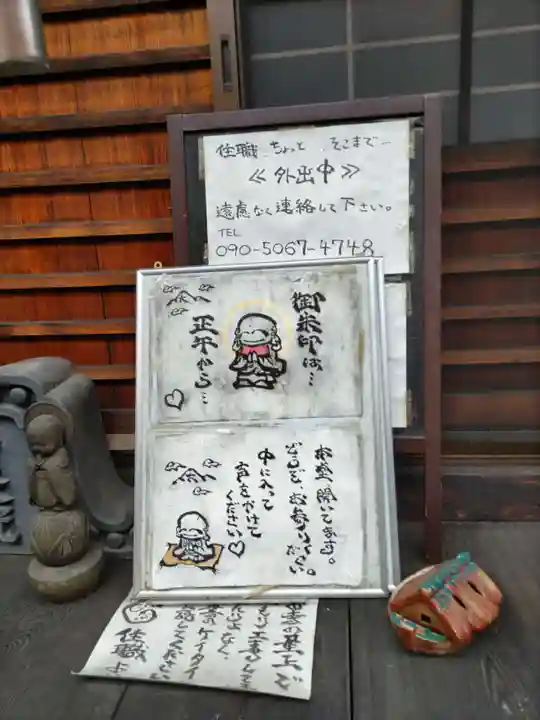 住職 ちょっと そこまで…
≪ 外出中 ≫
遠慮なく連絡して下さい。
TEL
090-5067-4748
御朱印は…
正午から…
本堂、開いてます。
どうぞ、お参り下さい。
中に入って
声をかけて
ください♡
住職